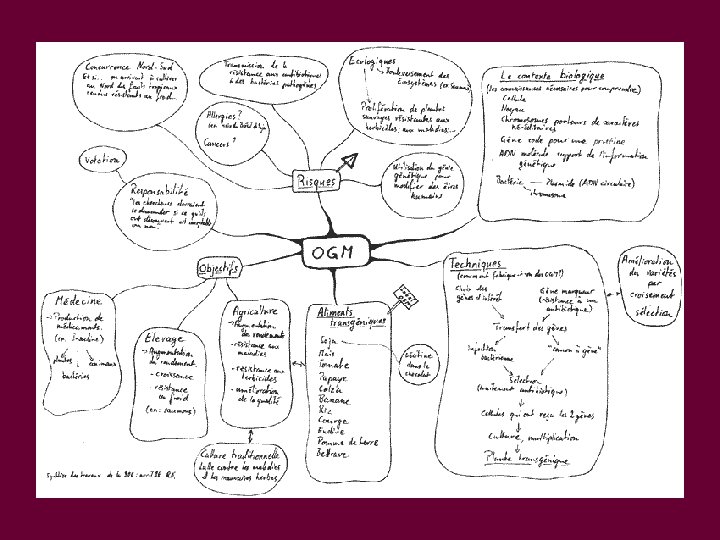 Concurrence Nord-Sud
Et si... on arrivait à cultiver
au Nord des fruits tropicaux
rendus résistants au froid
Transmission de la
résistance aux antibiotiques
à des bactéries pathogènes
Ecologiques
Bouleversement des
Ecosystèmes
Prolifération de plantes
sauvages résistantes aux
herbicides, aux maladies...
Allergies?
Cancers?
Risques
Utilisation du génie
génétique pour
modifier des êtres
humains
Le contexte biologique
(les connaissances nécessaires pour comprendre)
Cellule
Noyau
Chromosomes porteurs de caractères
héréditaires
Gène code pour une protéine
ADN molécule support de l'information
génétique
Bactérie
Plasmide (ADN circulaire)
chromosome
Votation
Responsabilité
Les chercheurs devraient
se demander si ce qu'ils
ont découvert est acceptable
ou non
OGM
Objectifs
Médecine
→ Production de
médicaments.
(ex. insuline)
plantes
animaux
bactéries
Elevage
→ Augmentation
du rendement
- croissance
- résistance
au froid
(ex: saumons)
Agriculture
→ Augmentation
des rendements
- résistance aux
maladies
- résistance aux
herbicides
- amélioration
de la qualité
Culture traditionnelle
Lutte contre les maladies
et les mauvaises herbes
Aliments
transgéniques
Soja
Maïs
Tomate
Papaye
Colza
Banane
Riz
Courge
Endive
Pomme de terre
Betterave
sans
OGM
lécithine
dans le
chocolat
Techniques
(comment fabrique-t-on des OGM?)
Choix des
gènes d'intérêt
Gène marqueur
(résistance à un
antibiotique)
Transfert des gènes
Infection
bactérienne
"canon à gène"
Sélection
(traitement antibiotique)
Cellules qui ont reçu les 2 gènes
Culture, multiplication
Plante transgénique
Amélioration
des variétés
par
croisement
sélection
Synthèse des travaux de la